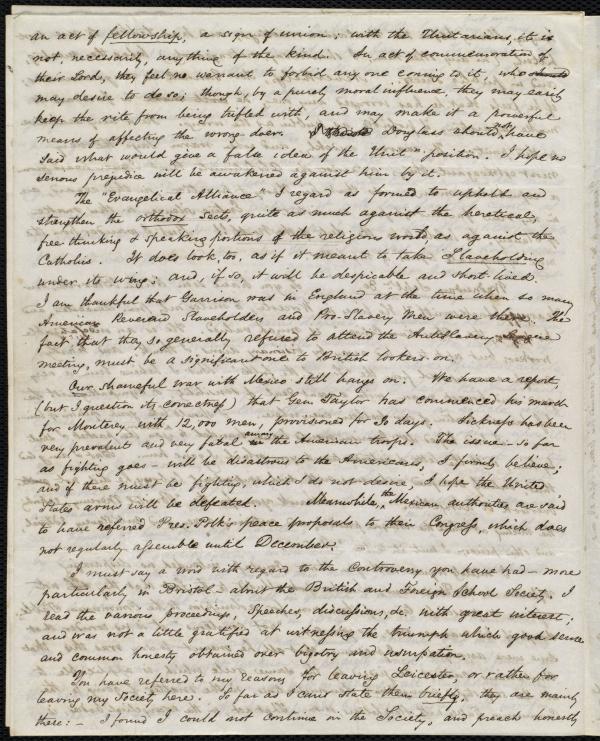 an act of fellowship, a sign of union; with the Unitarians, it is
not, necessarily, anything of the kind. In act of commemoration of
their Lord, they feel no warrant to forbid any one coming to it, who
may desire to do so; though, by a purely moral influence, they may early
keep the rite from being trifled with, and may make it a powerful
means of affecting the wrong-doer. Douglass should have
said what would give a false idea of the Unitn position. I hope no
serious prejudice will be awakened against him by it.
The "Evangelical Alliance" I regard as formed to uphold and
strengthen the orthodox sects, quite as much against the heretical,
free thinking & speaking portions of the religious world, as against the
Catholics. It does look, too, as if it meant to take Slaveholding
under its wing; and, if so, it will be despicable and short lived.
I am thankful that Garrison was in England at the time when so many
American Reverend Slaveholders and Pro-Slavery Men were there. The
fact that they so generally refused to attend the AntiSlavery League
meeting, must be a significant one to British lookers on.
Our shameful war with Mexico still hangs on. We have a report,
(but I question its correctness) that Gen. Taylor has commenced his march
for Monterey with 12,000 men, provisioned for 30 days. Sickness has been
very prevalent and very fatal among the American troops. The issue - so far
as fighting goes - will be disastrous to the Americans, I firmly believe;
and if there must be fighting, which I do not desire, I hope the United
States arms will be defeated. Meanwhile, the Mexican authorities are said
to have referred Pres. Polk's peace proposals to their Congress, which does
not regularly assemble until December.
I must say a word with regard to the Controversy you have had - more
particularly in Bristol - about the British and Foreign School Society. I
read the various proceedings, speeches, discussions, &c. with great interest;
and was not a little gratified at witnessing the triumph which good sense
and common honesty obtained over bigotry and usurpation.
You have referred to my reasons for leaving Leicester, or rather for
leaving my Society here. So far as I can state them briefly, they are mainly
these: - I found I could not continue in the Society, and preach honestly